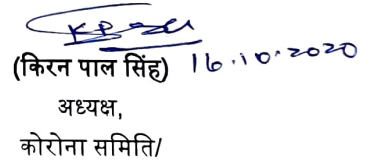 (किरन पाल सिंह) 16.10.2020
अध्यक्ष,
कोरोना समिति/